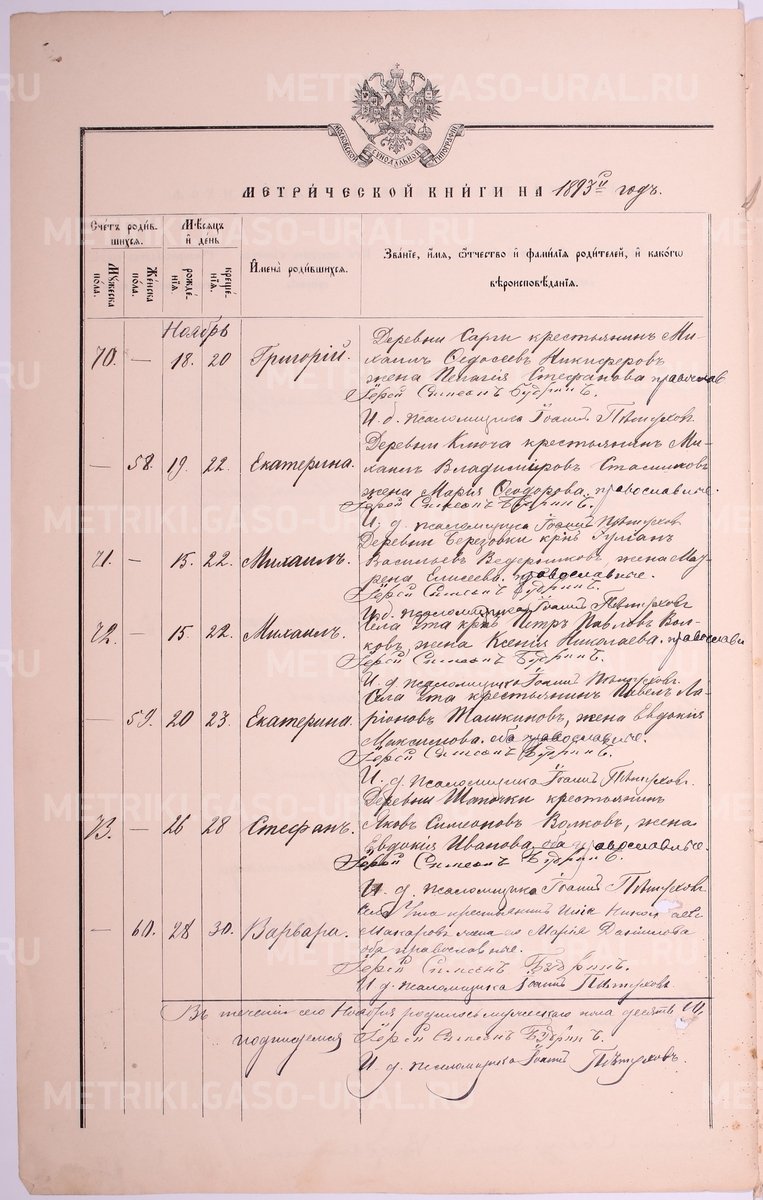 METRIKI.GASO-URAL.RU
МОСКОВСКОЙ СѴНОДАЛЬНОЙ ТИПОГРАФІИ
МЕТРИ́ЧЕСКОЙ КНИ́ГИ НА 1893й годъ.
Сче́тъ роди́в-
шихся.
Мѣ́сяцъ
и҆ де́нь
Му́жеска
по́ла.
Же́нска
по́ла.
рожде́-
нїѧ
креще́-
нїѧ.
И҆мена̀ роди́вшихся.
Зва́нїе, и҆́мѧ, ѻ҆́тчество и҆ фами́лїѧ роди́телей, и҆ како́гѡ
вѣроисповѣ́данїѧ.
Ноябрь
70. — 18. 20 Григорій.
Деревни Сарги крестьянинъ Ми-
хаилъ Ѳедосеевъ Никифоровъ
жена Пелагія Стефанова православ
Іерей Симеонъ Будринъ.
И. д. псаломщика Іоаннъ Пѣтуховъ
— 58. 19. 22. Екатерина.
Деревни Ключа крестьянинъ Ми-
хаилъ Владиміровъ
жена Марія Ѳеодорова. православные.
Іерей Симеонъ Будринъ.
И. д. псаломщика Іоаннъ Пѣтуховъ
71. — 15. 22. Михаилъ.
Деревни Березовки крнъ
Васильевъ Ведерниковъ жена Мав-
рена Елисеева. православные.
Іерей Симеонъ Будринъ.
И. д. псаломщика Іоаннъ Пѣтуховъ
72. — 15. 22. Михаилъ.
Села Ута крнъ Петръ Павловъ Вол-
ковъ, жена Ксенія Николаева. православн
Іерей Симеонъ Будринъ.
И. д. псаломщика Іоаннъ Пѣтуховъ.
— 59. 20 23. Екатерина.
Села Ута крестьянинъ Павелъ Ла-
ріоновъ Ташкиновъ, жена Евдокія
Максимова. оба православные.
Іерей Симеонъ Будринъ.
И. д. псаломщика Іоаннъ Пѣтуховъ.
73. — 26 28 Стефанъ.
Деревни Шапочки крестьянинъ
Яковъ Симеоновъ Волковъ, жена
Евдокія Иванова оба православные.
Іерей Симеонъ Будринъ.
И. д. псаломщика Іоаннъ Пѣтуховъ
— 60. 28 30. Варвара.
Села Ута крестьянинъ Никол аевъ
Макаровъ жена его Марія Данилова
оба православные.
Іерей Симеонъ Будринъ.
И д. псаломщика Іоаннъ Пѣтуховъ.
Въ теченіи сего Ноября родилось мужескаго пола десять
подписуемся Іерей Симеонъ Будринъ.
И. д. псаломщика Іоаннъ Пѣтуховъ.